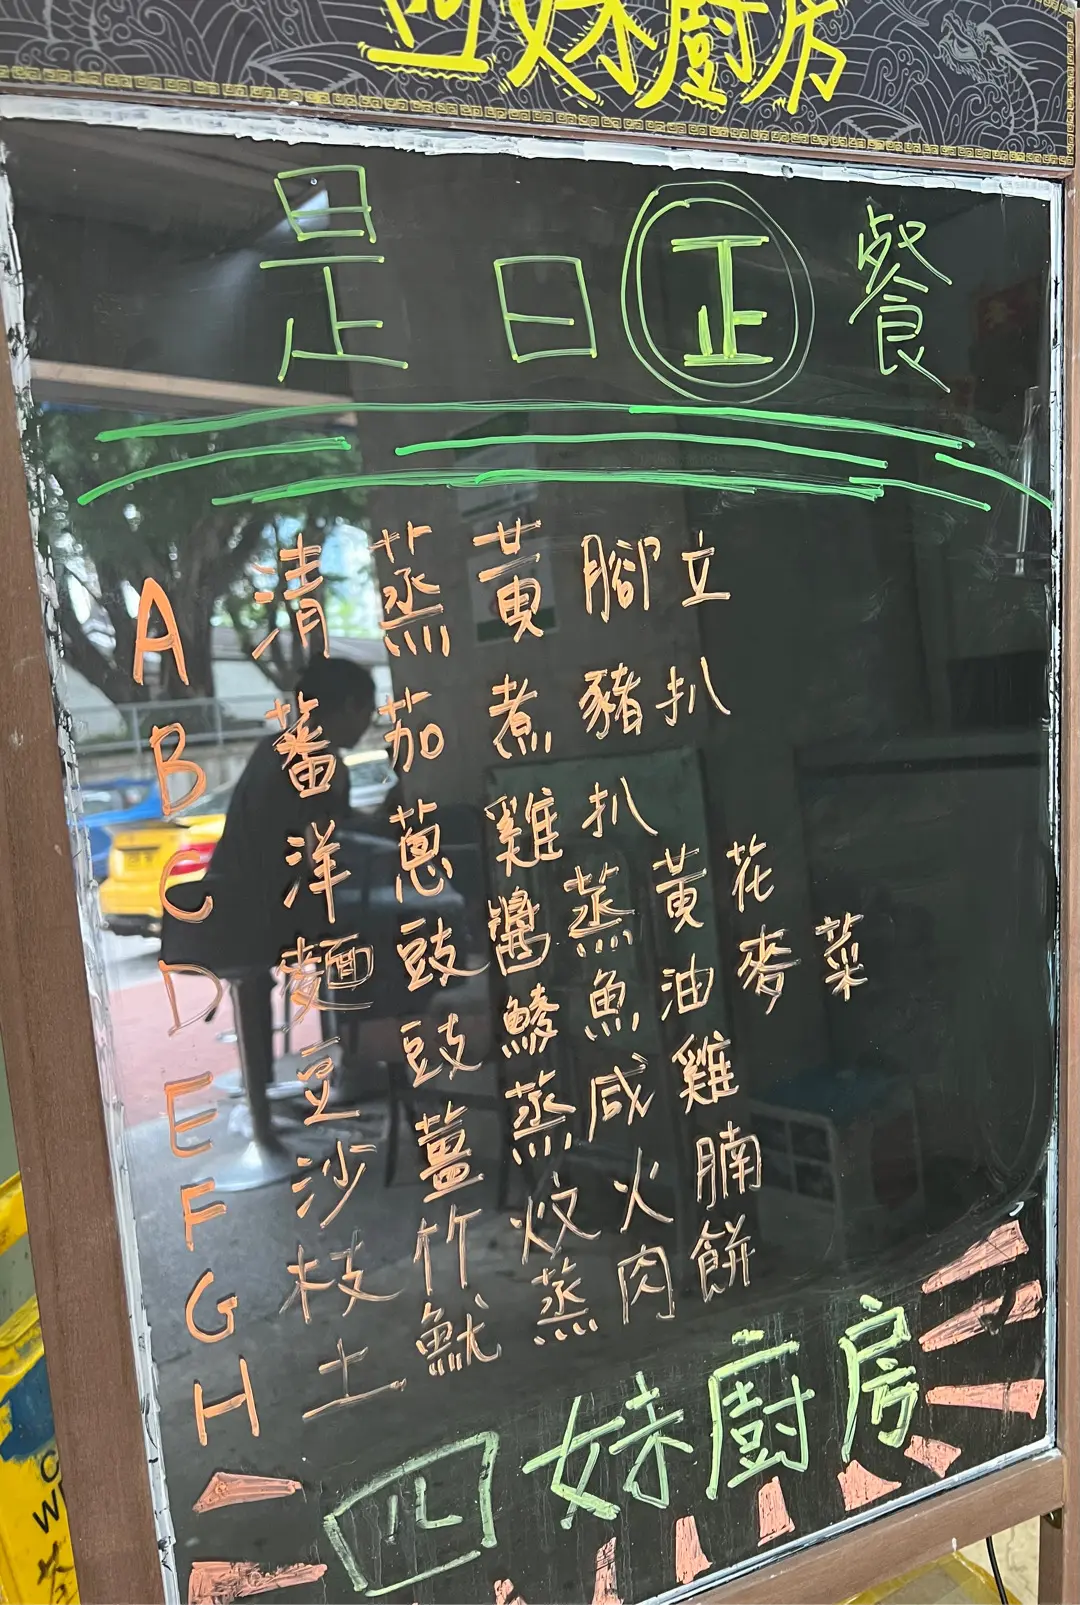 四妹廚房
是日正餐
A 清蒸黃腳立
B 蕃茄煮豬扒
C 洋蔥雞扒
D 麵豉醬蒸黃花
E 豆豉鯪魚油麥菜
F 沙薑蒸咸雞
G 枝竹炆火腩
H 土魷蒸肉餅
四妹廚房